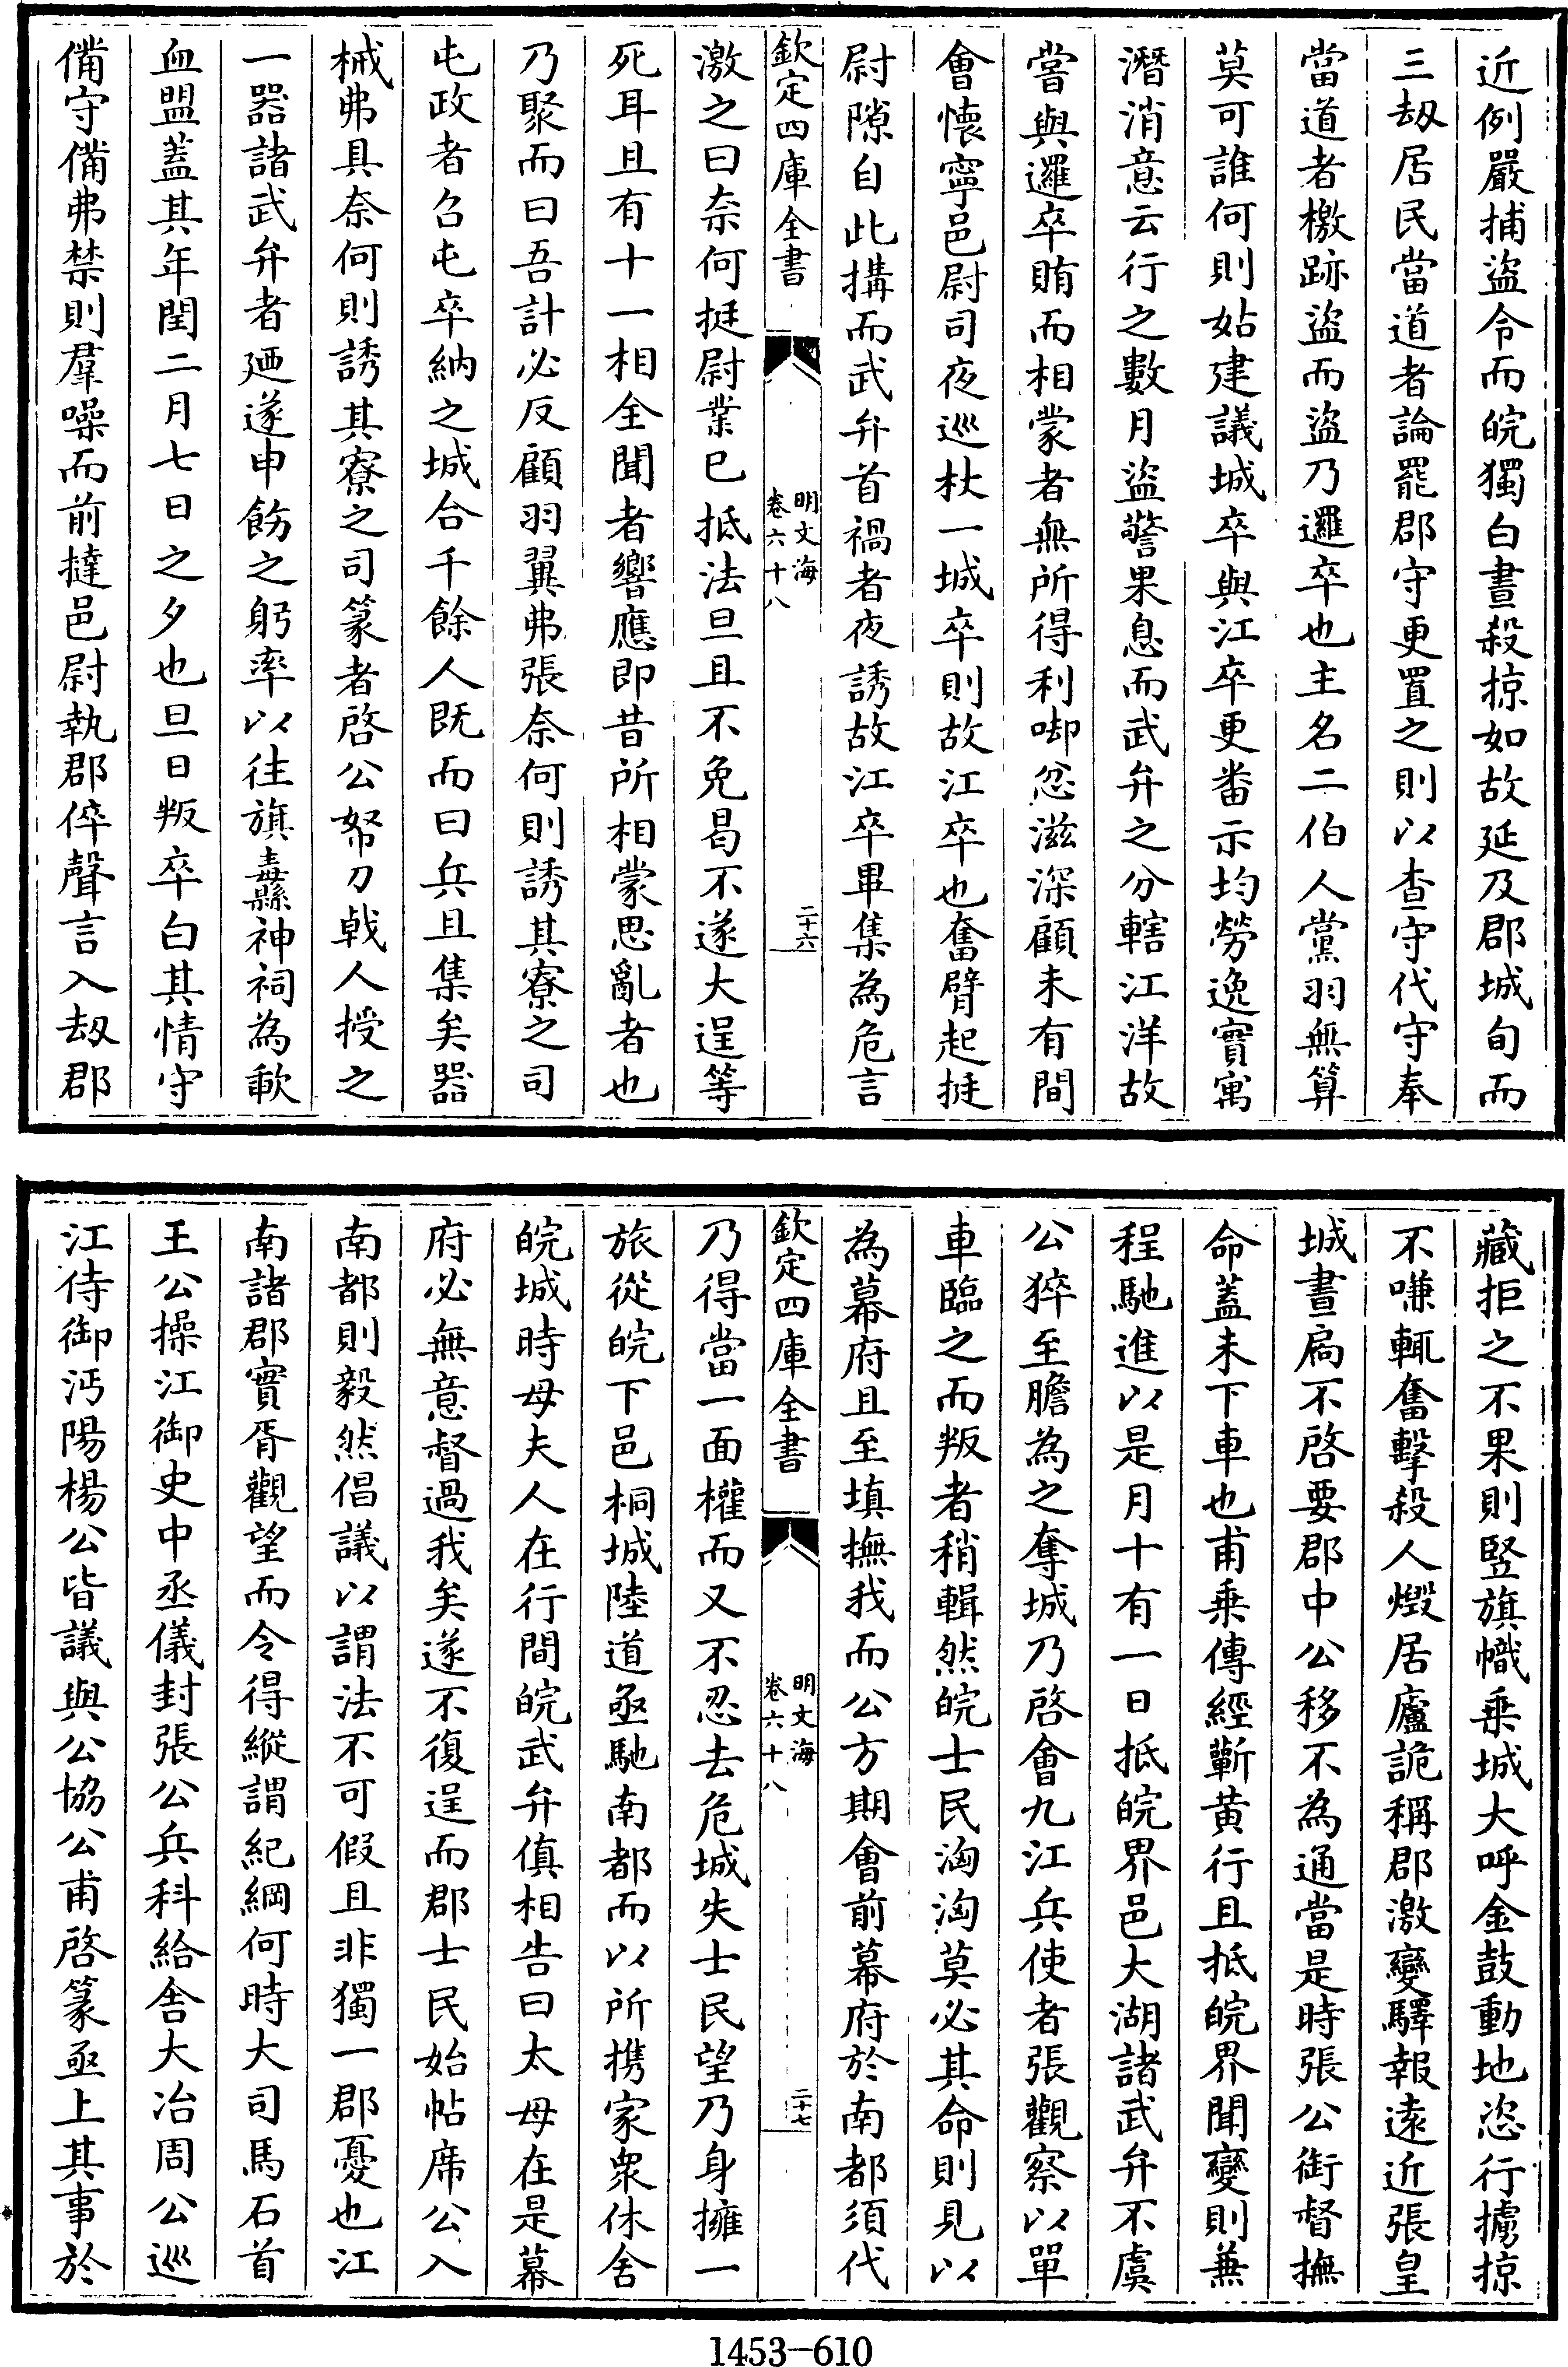 近例嚴捕盜令而皖獨白晝殺掠如故延及郡城旬而
三刼居民當道者論罷郡守更置之則以查守代守奉
當道者檄跡盜而盜乃邏卒也主名二伯人黨羽無算
莫可誰何則姑建議城卒與江卒更番示均勞逸實寓
潛消意云行之數月盜警果息而武弁之分轄江洋故
嘗與邏卒賄而相蒙者無所得利啣忿滋深顧未有間
會懷寧邑尉司夜巡杖一城卒則故江卒也奮臂起挺
尉隙自此搆而武弁首禍者夜誘故江卒畢集為危言
欽定四庫全書
明文海
卷六十八
二十六
激之曰奈何挺尉業已抵法旦且不免曷不遂大逞等
死耳且有十一相全聞者響應即昔所相蒙思亂者也
乃聚而曰吾計必反顧羽翼弗張奈何則誘其寮之司
屯政者召屯卒納之城合千餘人既而曰兵且集矣器
械弗具奈何則誘其寮之司篆者啓公帑刀戟人授之
一器諸武弁者廼遂申飭之躬率以往旗纛縣神祠為歃
血盟蓋其年閏二月七日之夕也旦日叛卒白其情守
備守備弗禁則羣噪而前撻邑尉執郡倅聲言入刼郡
藏拒之不果則竪旗幟乗城大呼金鼓動地恣行擄掠
不嗛輒奮擊殺人燬居廬詭稱郡激變驛報遠近張皇
城晝扄不啓要郡中公移不為通當是時張公銜督撫
命蓋未下車也甫乗傳經蘄黄行且抵皖界聞變則兼
程馳進以是月十有一日抵皖界邑大湖諸武弁不虞
公猝至膽為之奪城乃啓會九江兵使者張觀察以單
車臨之而叛者稍輯然皖士民洶洶莫必其命則見以
為幕府且至填撫我而公方期會前幕府於南都須代
欽定四庫全書
明文海
卷六十八
二十七
乃得當一面權而又不忍去危城失士民望乃身擁一
旅從皖下邑桐城陸道亟馳南都而以所携家衆休舍
皖城時母夫人在行間皖武弁偵相告曰太母在是幕
府必無意督過我矣遂不復逞而郡士民始帖席公入
南都則毅然倡議以謂法不可假且非獨一郡憂也江
南諸郡實胥觀望而令得縱謂紀綱何時大司馬石首
王公操江御史中丞儀封張公兵科給舍大冶周公巡
江侍御沔陽楊公皆議與公協公甫啓篆亟上其事於
1453-610